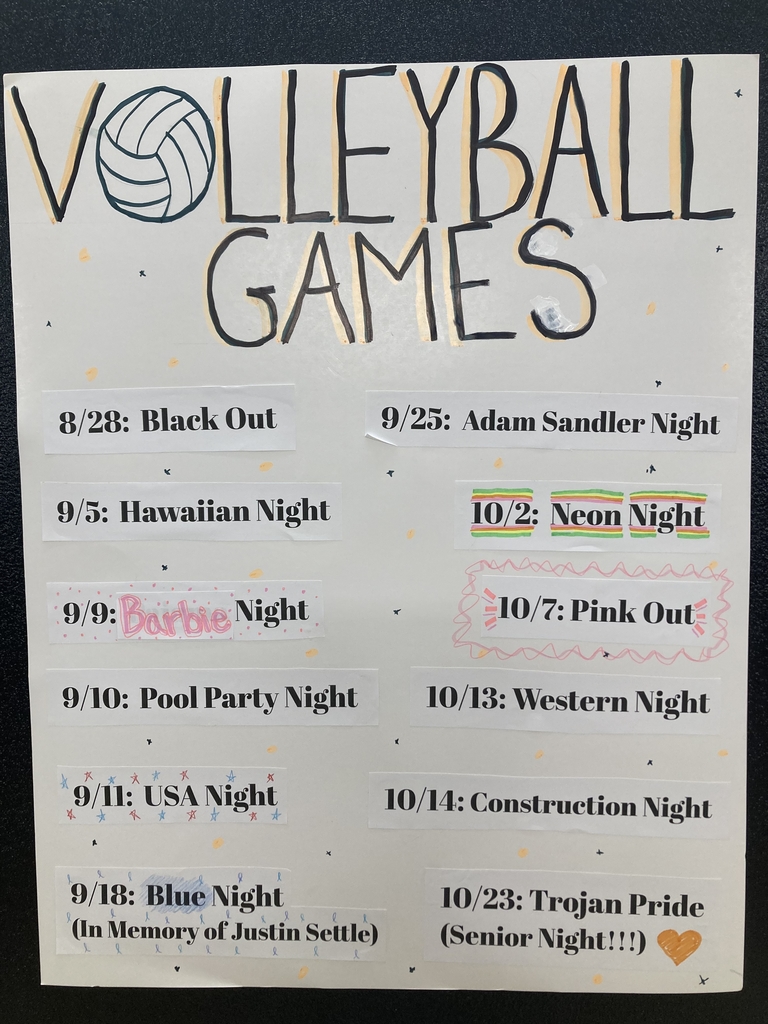 VOLLEYBALL
GAMES
8/28: Black Out
9/5: Hawaiian Night
9/9: Barbie Night
9/10: Pool Party Night
9/11: USA Night
9/18: Blue Night
(In Memory of Justin Settle)
9/25: Adam Sandler Night
10/2: Neon Night
10/7: Pink Out
10/13: Western Night
10/14: Construction Night
10/23: Trojan Pride
(Senior Night!!!)